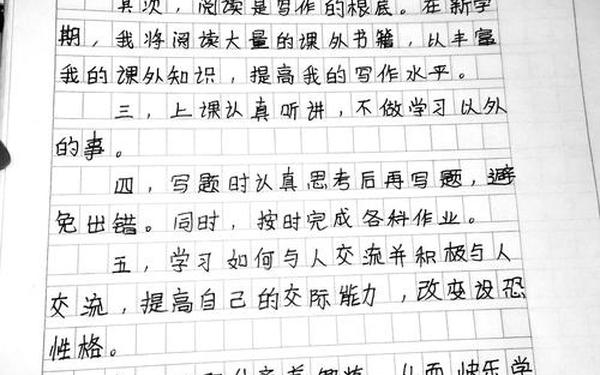 其次，阅读是写作的根底。在新学
期，我将阅读大量的课外书籍，以丰富
我的课外知识，提高我的写作水平。
三，上课认真听讲，不做学习以外
的事。
四，写题时认真思考后再写题，避
免出错。同时，按时完成各科作业。
五，学习如何与人交流并积极与人
交流，提高自己的交际能力，改变设恐
性格。
从而快乐学